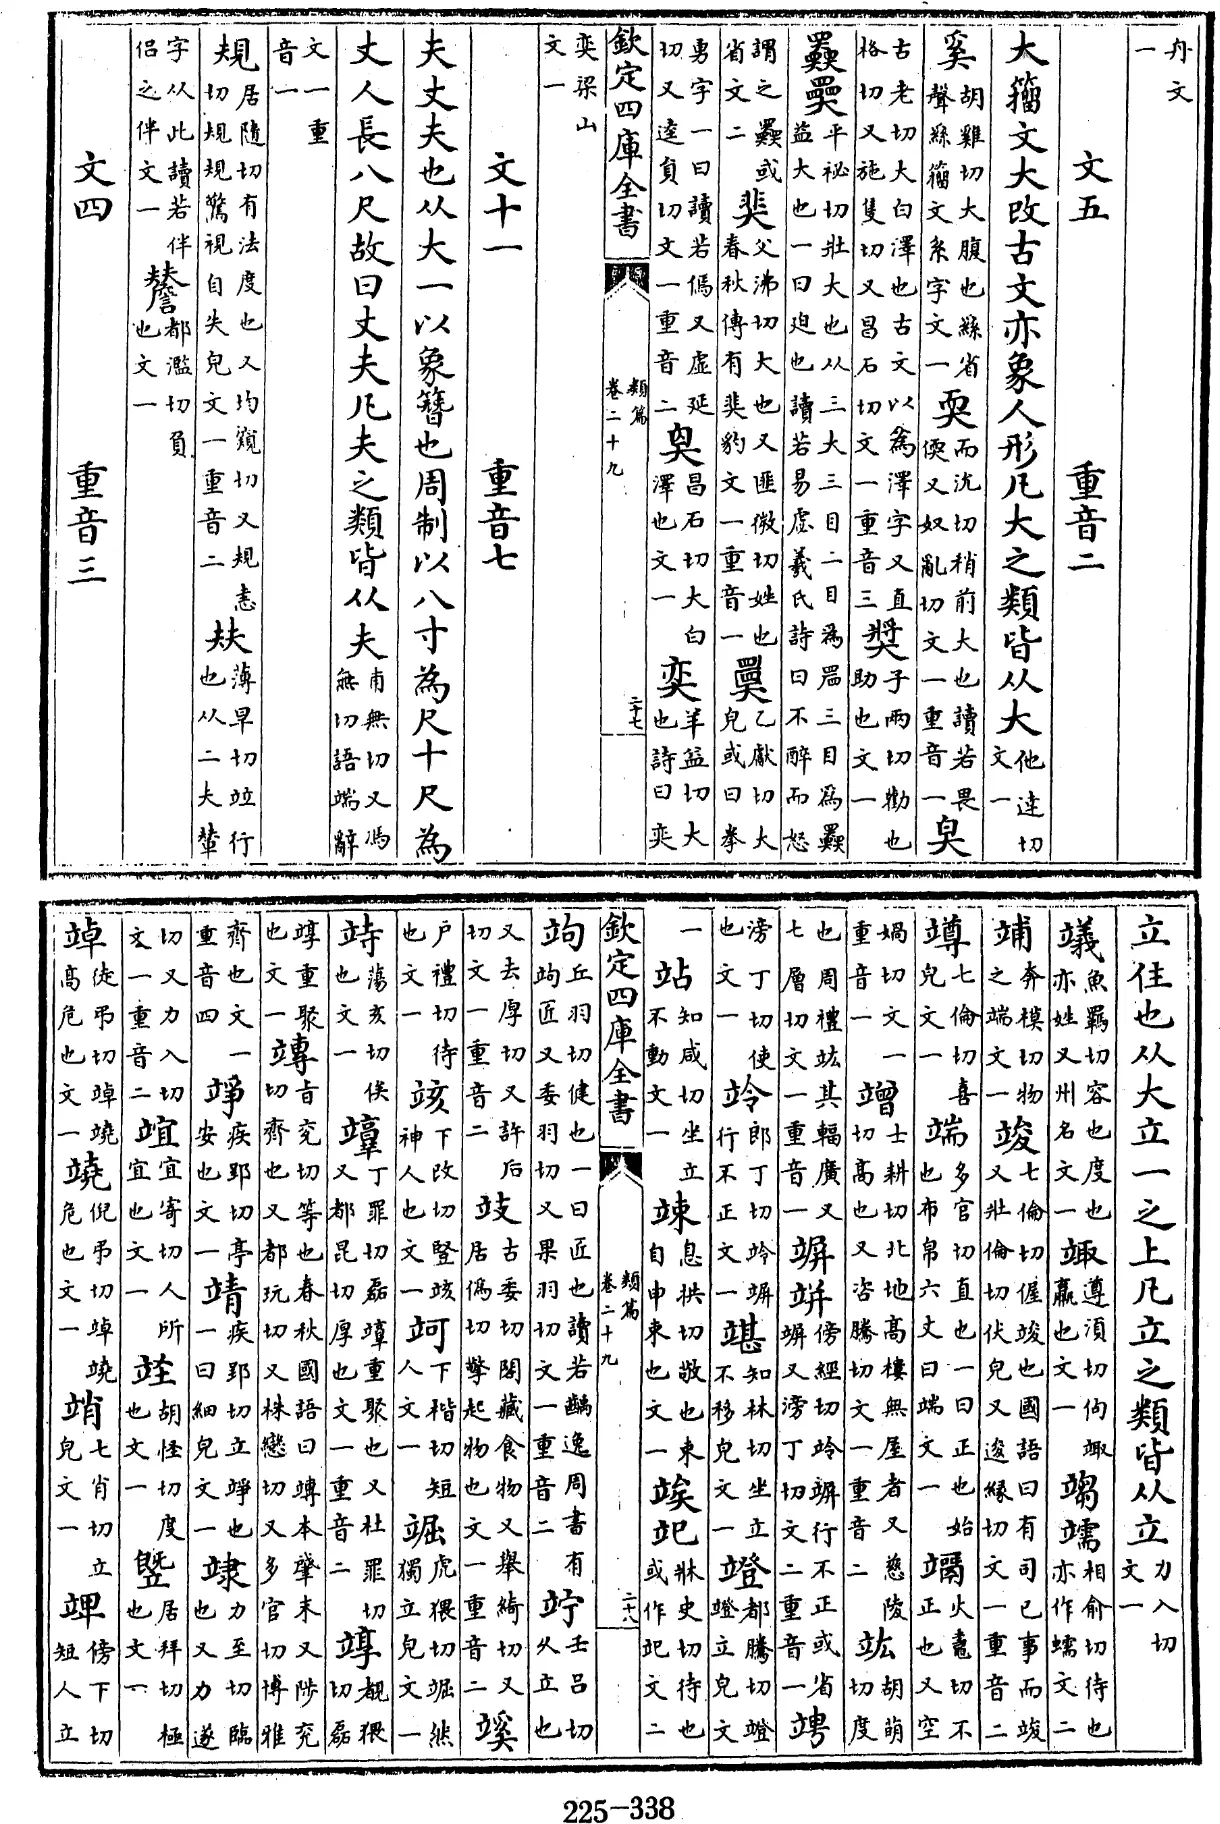 舟文一
文五 重音二
大籀文大改古文亦象人形凡大之類皆从大他達切文一
奚胡雞切大腹也𦃟省聲𦃟籀文系字文一耎而沇切稍前大也讀若畏偄又奴亂切文一重音一臭
古老切大白澤也古文以為澤字又直格切又施隻切又昌石切文一重音三奬子兩切勸也助也文一
𡚤奰平祕切壯大也从三大三目二目為𥆞三目為𡚤益大也一曰迫也讀若易虙羲氏詩曰不醉而怒
謂之𡚤或省文二𡘷父沸切大也又匪微切姓也春秋傳有𡘷豹文一重音一乙獻切大皃或曰拳
勇字一曰讀若傿又虛延切又逵負切文一重音二臭昌石切大白澤也文一奕羊益切大也詩曰奕
欽定四庫全書 類篇卷二十九 二十七
奕梁山文一
文十一 重音七
夫丈夫也从大一以象簪也周制以八寸為尺十尺為
丈人長八尺故曰丈夫凡夫之類皆从夫甫無切又馮無切語端辭
文一重音一
規居隨切有法度也又均窺切又規恚切規規驚視自失皃文一重音二㚘薄旱切竝行也从二夫輦
字从此讀若伴侶之伴文一都濫切負也文一
文四 重音三
立住也从大立一之上凡立之類皆从立力入切文一
䕏魚羈切容也度也亦姓又州名文一䇍遵須切䇃䇍羸也文一䇓𥪯相俞切待也亦作蠕文二
䇏奔模切物之端文一竣七倫切偓竣也國語曰有司已事而竣又壯倫切伏皃又逡緣切文一重音二
竴七倫切喜皃文一端多官切直也一曰正也始也布帛六丈曰端文一火䵻切不正也又空
媧切文一重音一竲士耕切北地高樓無屋者又慈陵切高也又咨騰切文一重音二竑胡萌切度
也周禮竑其輻廣又七層切文一重音一竮竫傍經切竛竮行不正或省竮又滂丁切文二重音一竮
滂丁切使也文一竛郎丁切竛竮行不正文一䇒知林切坐立不移皃文一竳都騰切竳竳立皃文
一站知咸切坐立不動文一竦息拱切敬也束自申束也文一竢䇃牀史切待也或作䇃文二
欽定四庫全書 類篇卷二十九 二十八
竘丘羽切健也一曰匠也讀若齲逸周書有竘匠又委羽切又果羽切文一重音二竚壬呂切久立也
又去厚切又許后切文一重音二攱古委切閣藏食物又舉綺切又居偽切擎起物也文一重音二𥪡
戶禮切待也文一䇋下改切豎䇋神人也文一下楷切短人文一䇔虎猥切䇔然獨立皃文一
䇌蕩亥切俟也文一䇞丁罪切磊䇞重聚也又杜罪切又都昆切厚也文一重音二䇏覩猥切磊
䇏重聚也文一竱旨兖切等也春秋國語曰竱本肇末又陟兖切齊也又都玩切又株戀切又多官切博雅
齊也文一重音四竫疾郢切亭安也文一靖疾郢切立竫也一曰細皃文一䇐力至切臨也又力遂
切又力入切文一重音二䇝宜寄切人所宜也文一䇈胡怪切度也文一䇖居拜切極也文一
䇕徒弔切䇕𥪯高危也文一𥪯倪弔切䇕𥪯危也文一䇌七肖切立皃文一䇑傍下切短人立